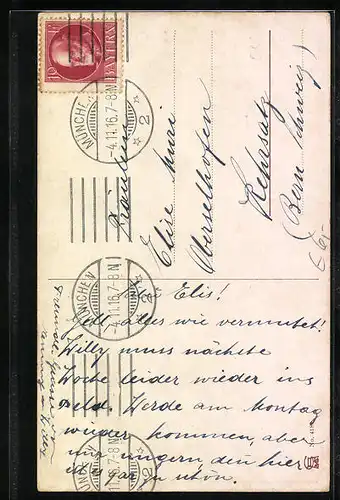 10
BAYERN
MÜNCHEN
-4.11.16.7-8N
2
Fräulein
Elise Muri
Oberselhofen
Kehrsatz
(Bern Schweiz)
MÜNCHEN
-4.11.16.7-8N
2
Elis!
alles wie vermutet!
Willy muss nächste
Woche leider wieder ins
Feld. Werde am Montag
wieder kommen, aber
nur ungern denn hier
ist gar zu schön.
MÜNCHEN
-4.11.16.7-8N
2